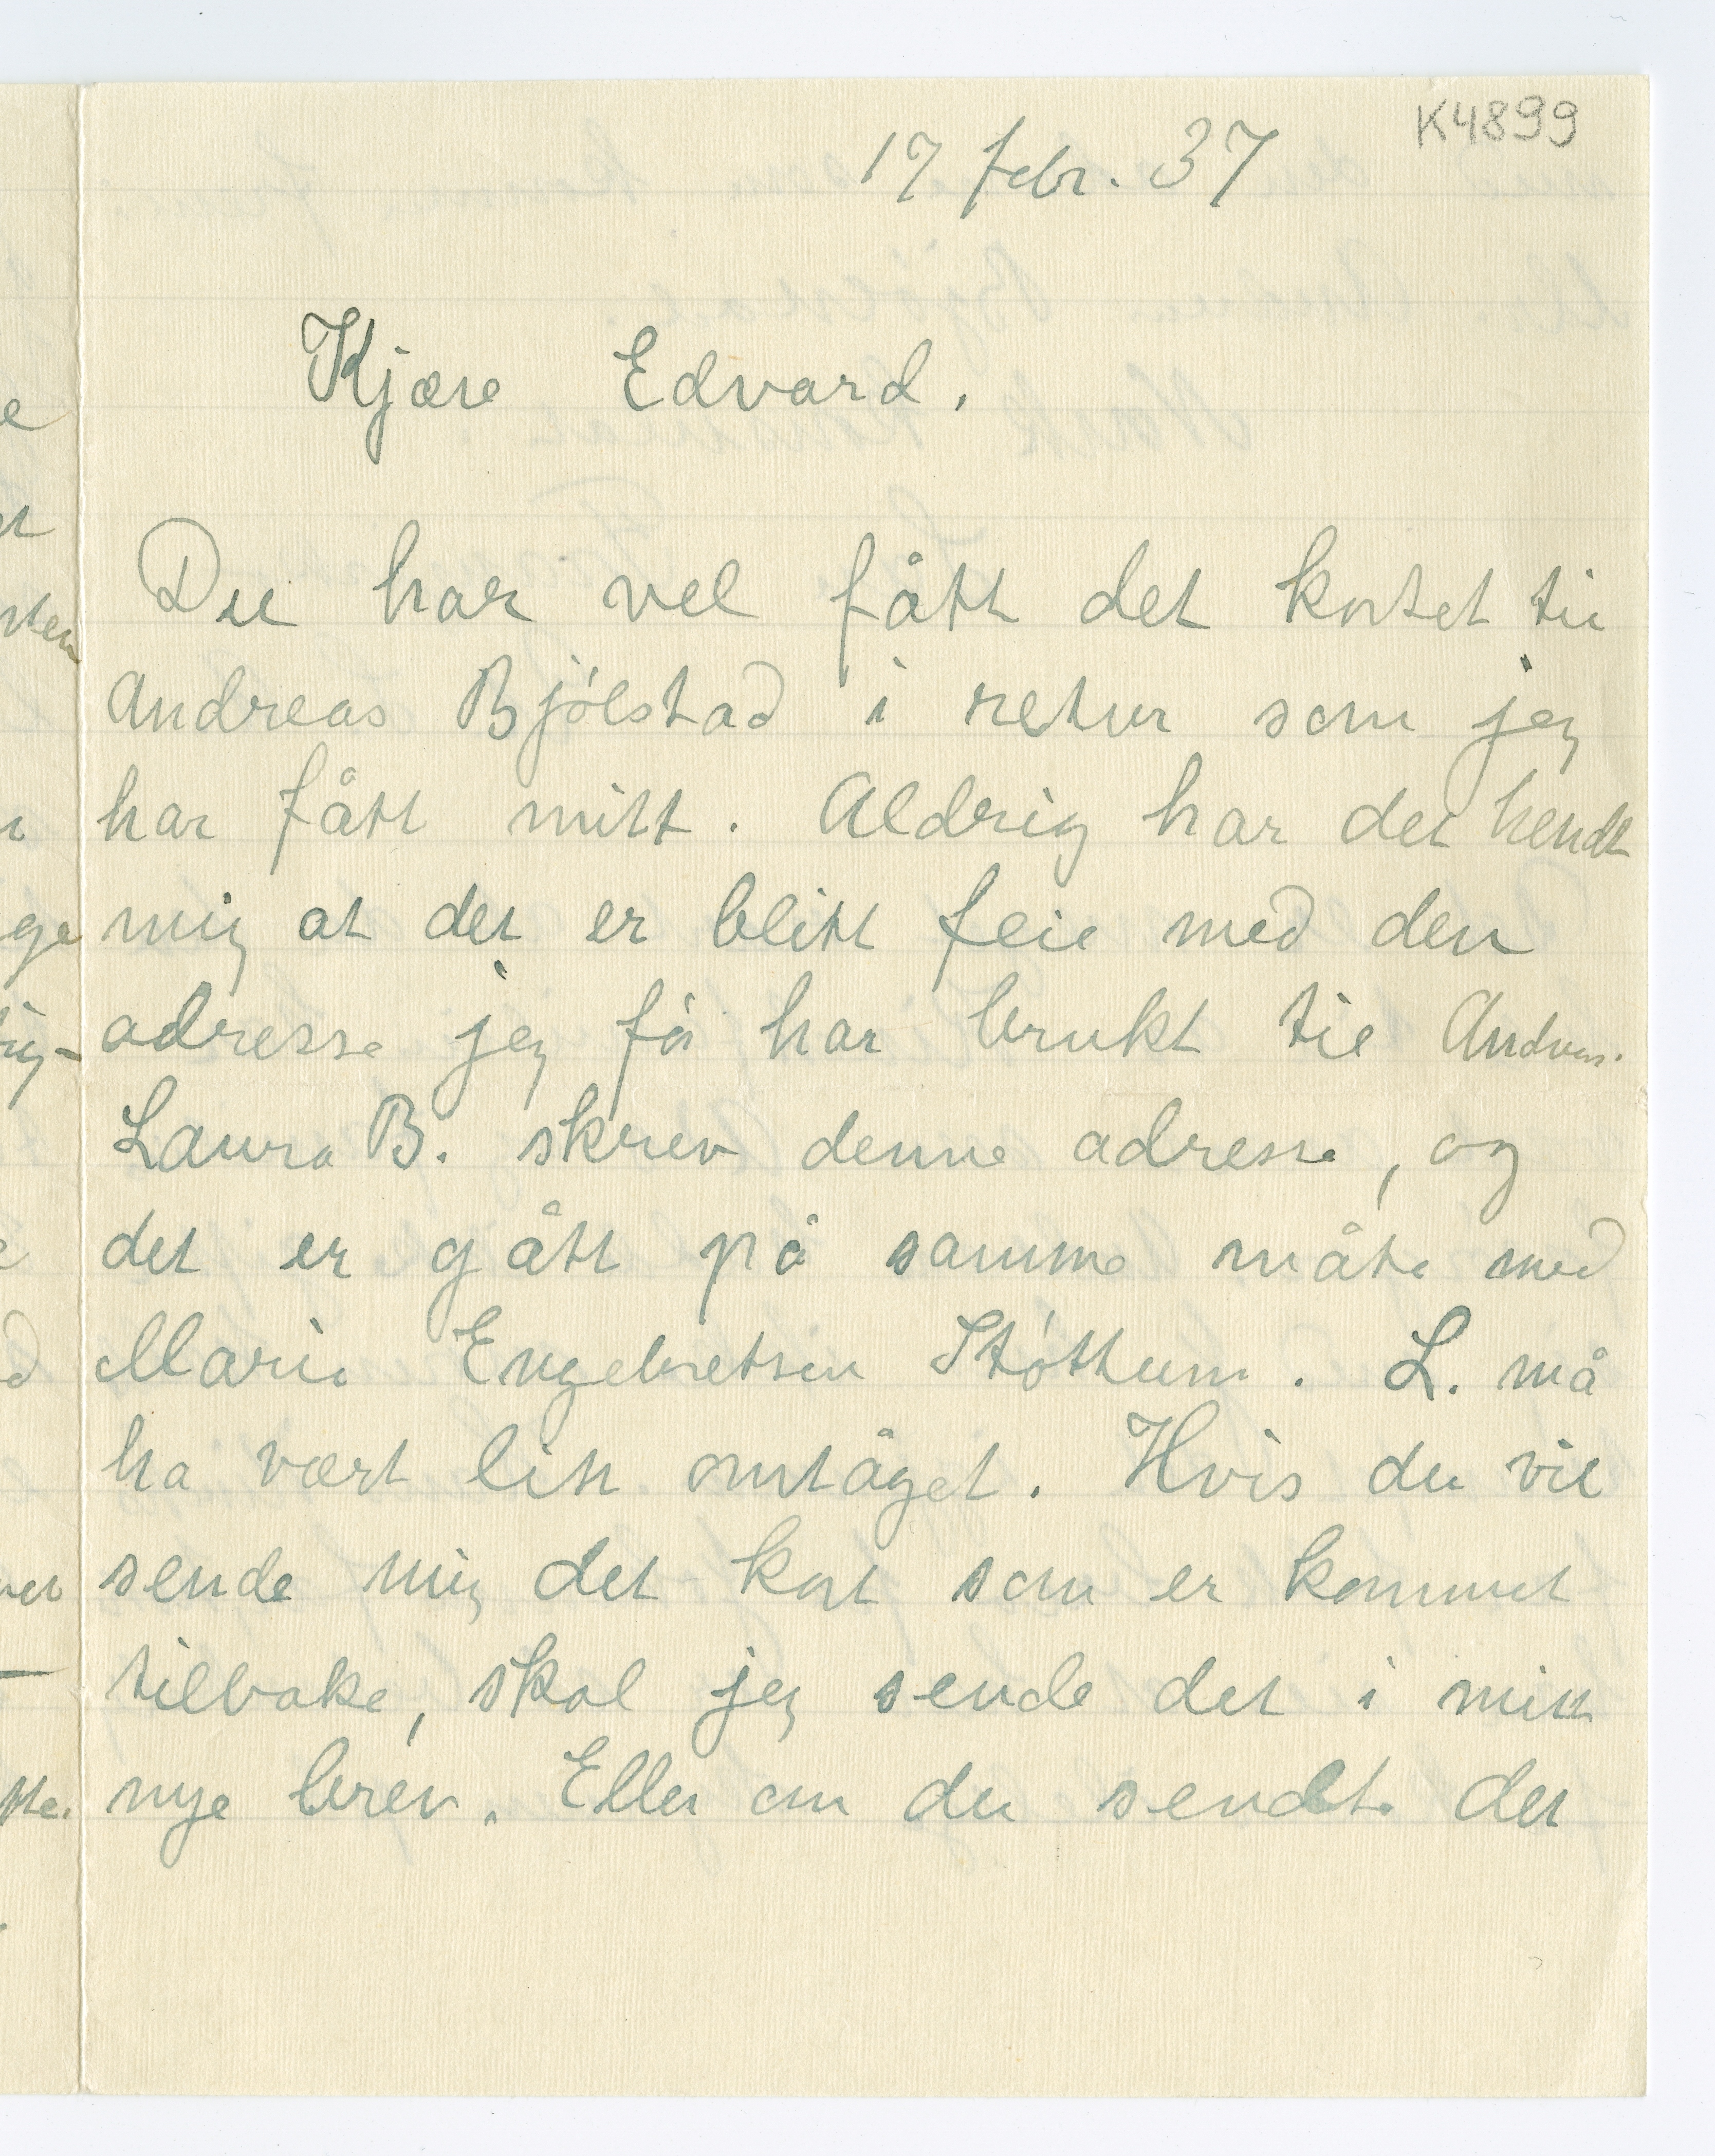 K4899
17 febr. 37
Kjære Edvard.
Du har vel fått det kortet til
Andreas Bjólstad i retur som jeg
har fått mitt. Aldrig har det hendt
mig at det er blitt feil med den
adresse jeg fór har brukt til Andreas.
Laura B. skrev denne adresse, og
det er gått på samme måte med
Marie Engebretsen Stóttum. L. må
ha vært litt omtåget. Hvis du vil
sende mig det kort som er kommet
tilbake, skal jeg sende det i mitt
nye brev. Eller om du sendte det